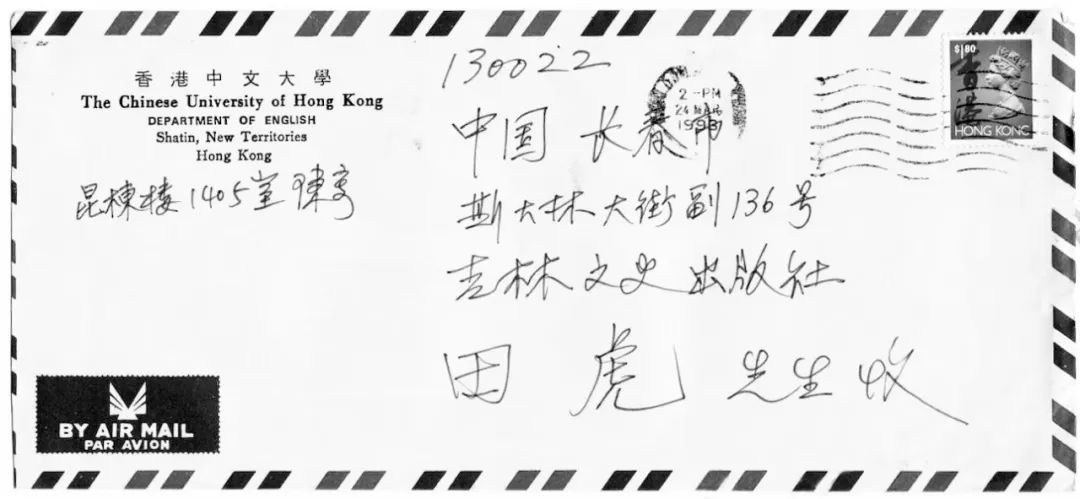 香港中文大學
The Chinese University of Hong Kong
DEPARTMENT OF ENGLISH
Shatin, New Territories
Hong Kong
昆棟樓1405室 陳
130022
中国 长春市
斯大林大街副136号
吉林文史出版社
田 虎 先生 收
2-PM
24 MAR
1993
$1.80
香港
HONG KONG
BY AIR MAIL
PAR AVION